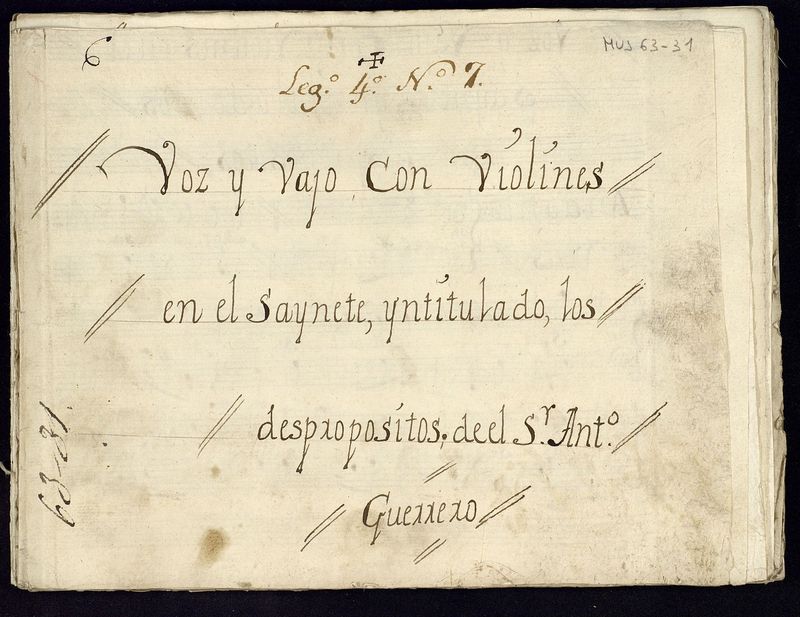 6
MUS 63-31
Leg.º 4.º N.º 7.
Voz y Vajo Con Violines
en el Saynete, yntitulado, los
despropositos, de el S.r Ant.º
Guerrero
63-31.